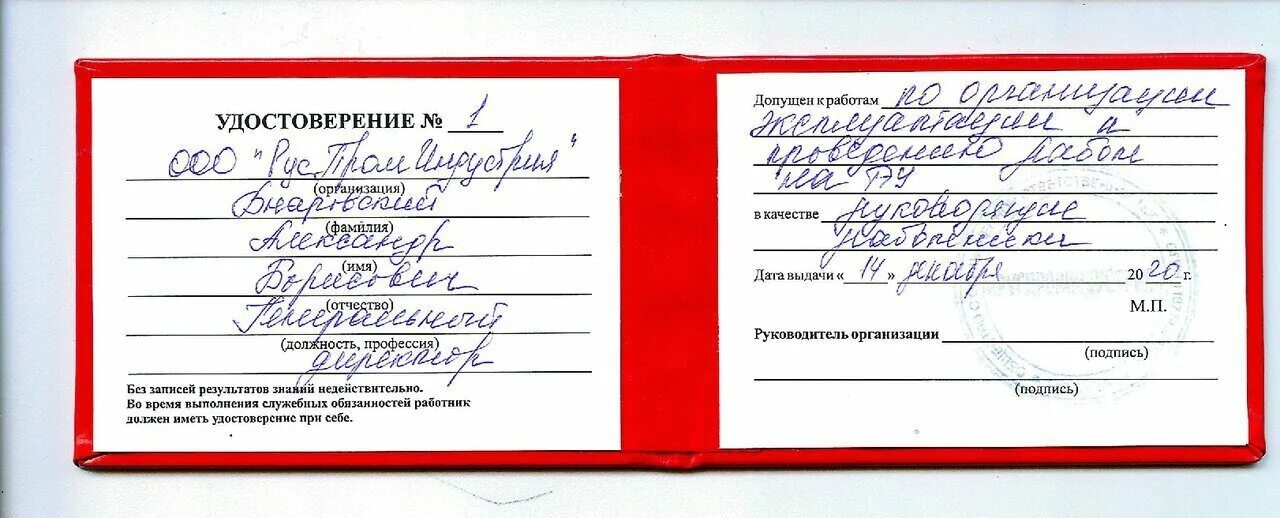 УДОСТОВЕРЕНИЕ № 1
ООО "РусПромИндустрия"
(организация)
Днаровский
(фамилия)
Александр
(имя)
Борисович
(отчество)
Генеральный
(должность, профессия)
директор
Без записей результатов знаний недействительно.
Во время выполнения служебных обязанностей работник
должен иметь удостоверение при себе.
Допущен к работам по организации
эксплуатации и
проведению работ
на
в качестве
работника
Дата выдачи « 14 » декабря 2020 г.
М.П.
Руководитель организации
(подпись)
(подпись)